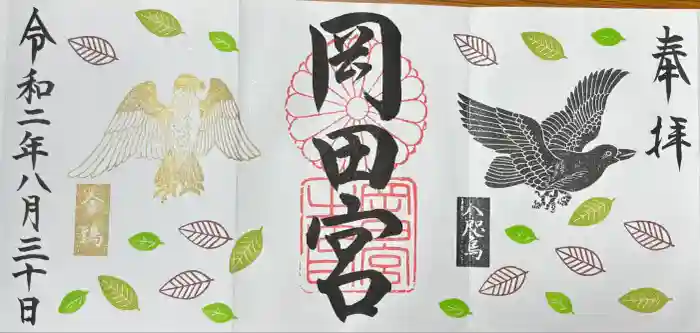 奉拝
八咫烏
岡田宮
金鵄
令和二年八月三十日